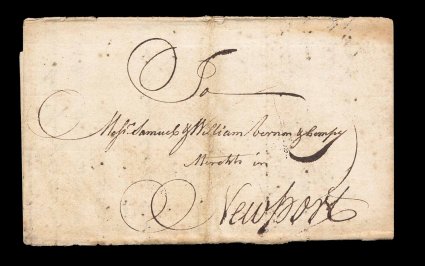 To
Messrs Samuel & William Vernon & Compy
Merchts in
Newport